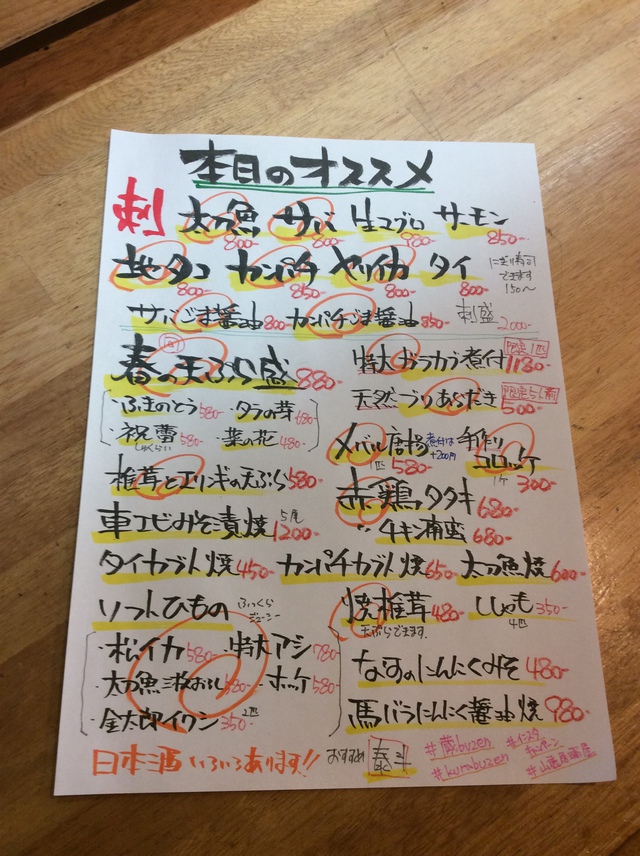 本日のオススメ
刺 太刀魚 800- サバ 800- 生マグロ 980- サーモン 850-
地ダコ 800- カンパチ 850- ヤリイカ 800- タイ 800- にぎり寿司できます 150〜
サバごま醤油 800- カンパチごま醤油 850- 刺盛 2000-
春の天ぷら盛 880-
・ふきのとう 580- ・タラの芽 680-
・祝蕾 しゅくらい 580- ・菜の花 480-
椎茸とエリンギの天ぷら 580-
車エビみそ漬焼 5尾 1200-
タイカブト焼 450- カンパチカブト焼 650- 太刀魚焼 600-
ソフトひもの ふっくらジューシー
・松イカ 580- ・特大アジ 780-
・太刀魚三枚おろし 580- ・ホッケ 580-
・金太郎イワシ 2匹 350-
特大ガラカブ煮付 限定1匹 1180-
天然ブリあらだき 500-
メバル唐揚 1匹 580- 煮付は+200円
手作りコロッケ 1ケ 300-
赤鶏タタキ 680-
〃 チキン南蛮 680-
焼椎茸 480- 天ぷらできます。 ししゃも 4匹 350-
なすのにんにくみそ 480-
馬バラにんにく醤油焼 980-
日本酒いろいろあります!! おすすめ 泰斗
#蔵buzen
#kurabuzen